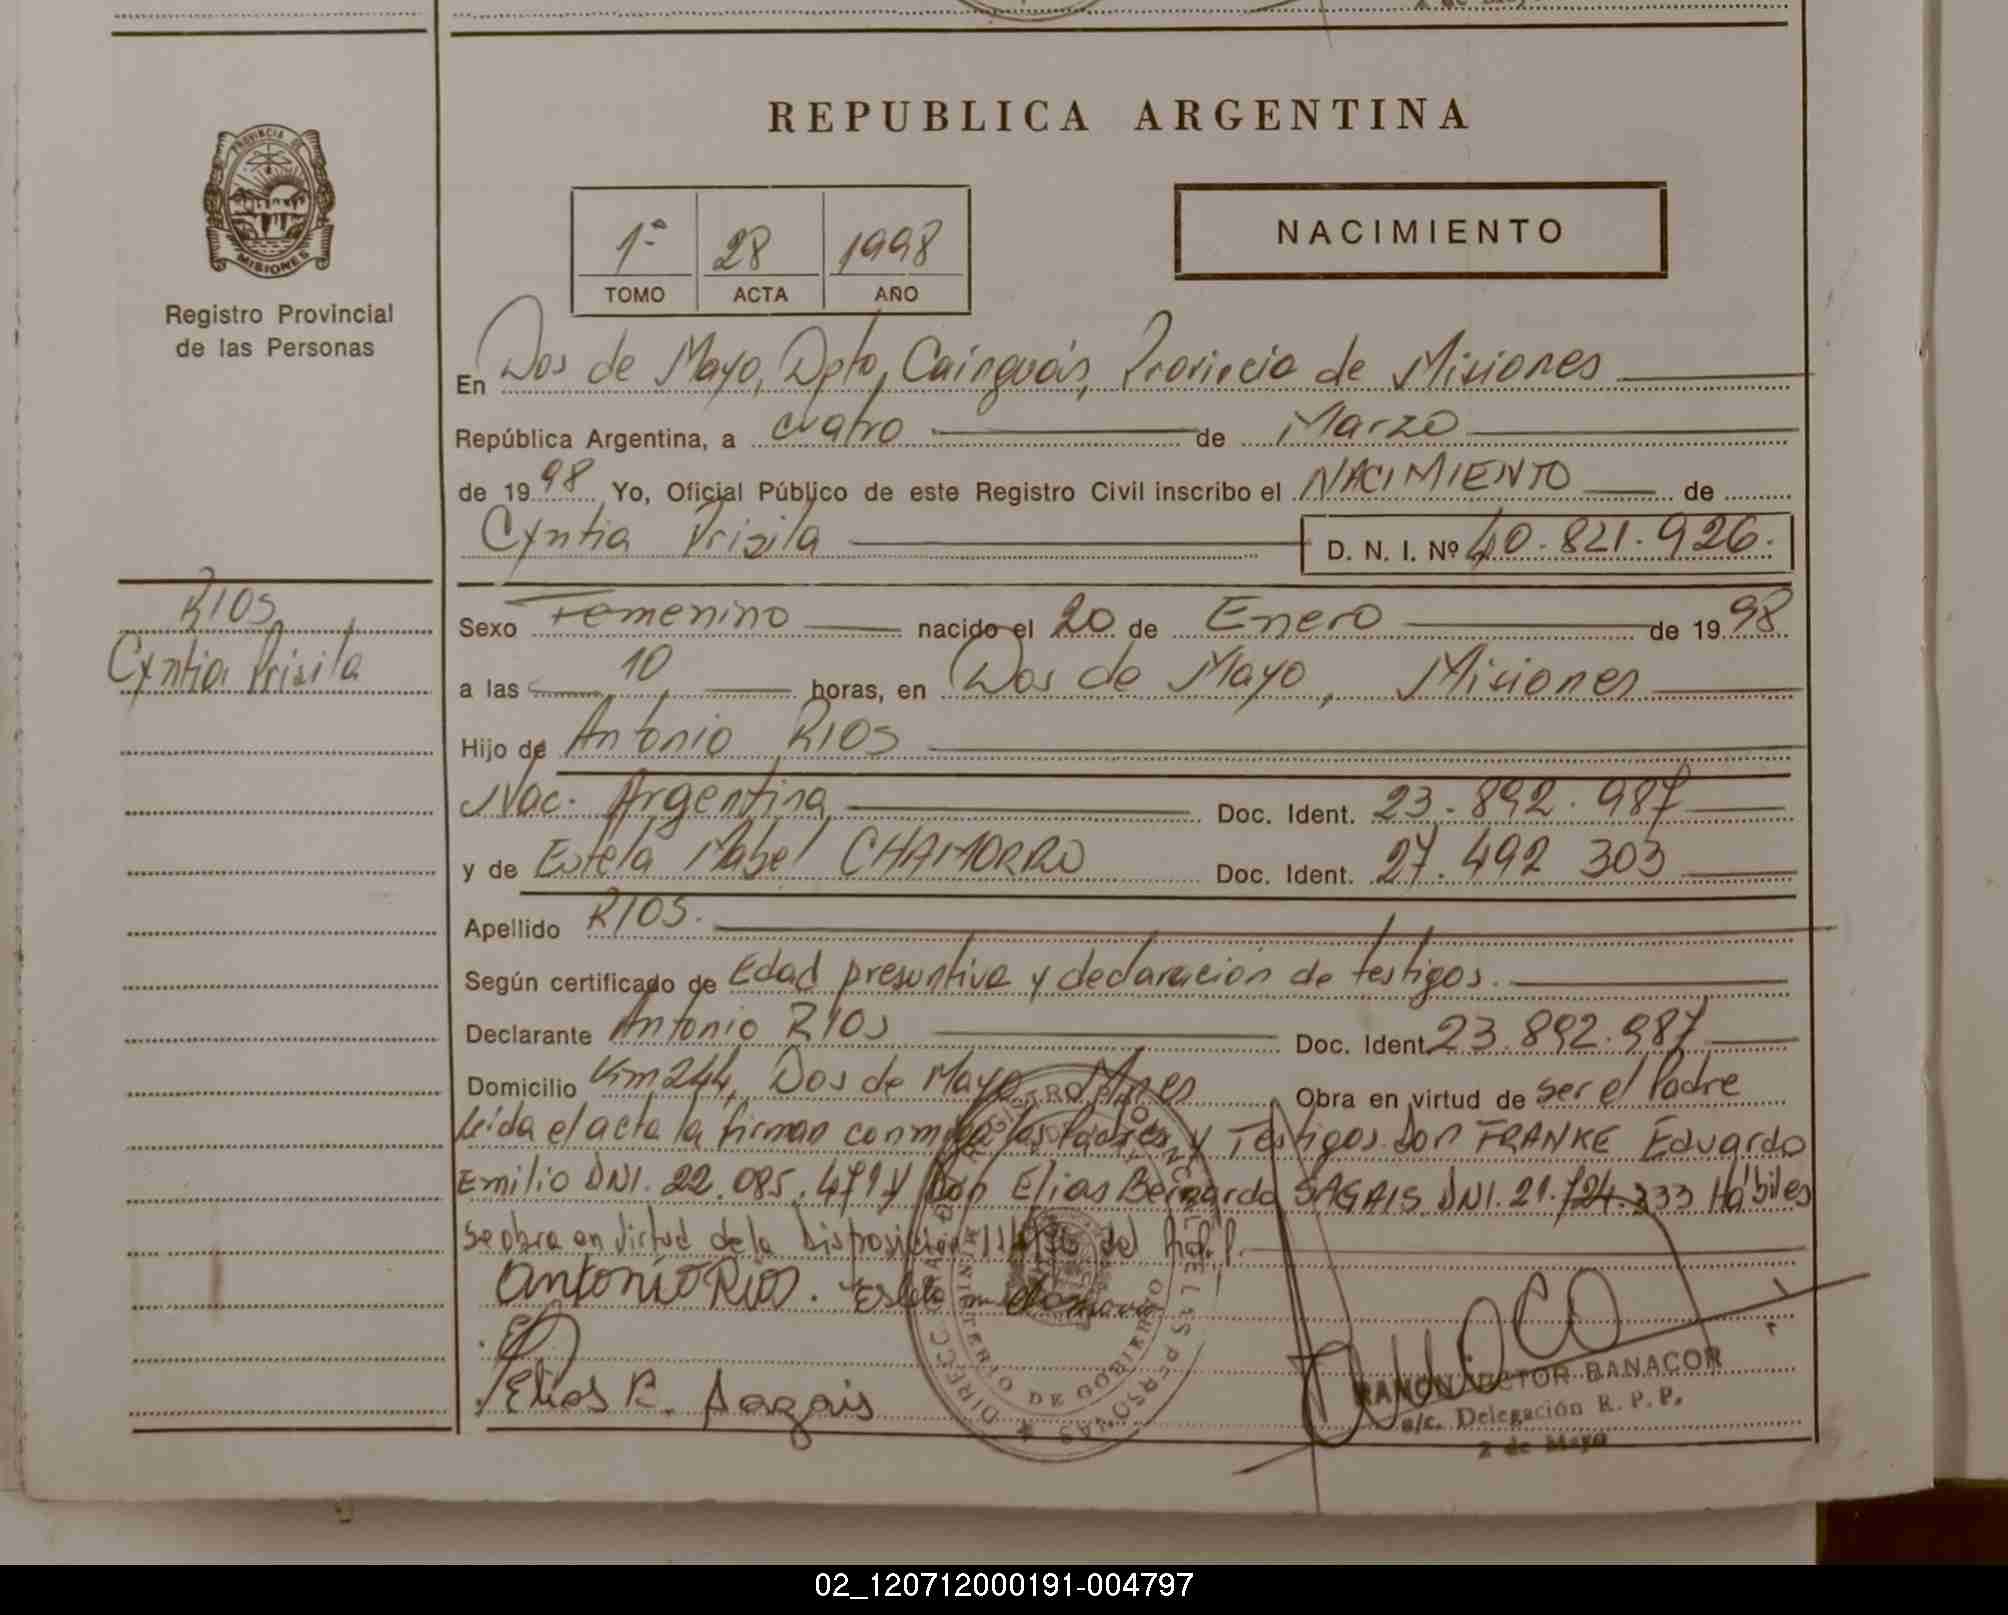 REPUBLICA ARGENTINA
PROVINCIA DE
MISIONES
Registro Provincial
de las Personas
1ª 28 1998
TOMO ACTA AÑO
NACIMIENTO
En Dos de Mayo, Dpto, Cainguás, Provincia de Misiones
República Argentina, a cuatro de Marzo
de 1998 Yo, Oficial Público de este Registro Civil inscribo el NACIMIENTO de
Cyntia Prisila D. N. I. Nº 40.821.926.
RIOS
Cyntia Prisila
Sexo Femenino nacido el 20 de Enero de 1998
a las 10 horas, en Dos de Mayo, Misiones
Hijo de Antonio RIOS
Nac. Argentina Doc. Ident. 23.892.987
y de Estela Mabel CHAMORRO Doc. Ident. 27.492 303
Apellido RIOS.
Según certificado de Edad presuntiva y declaración de testigos.
Declarante Antonio RIOS Doc. Ident. 23.892.987
Domicilio Km 244, Dos de Mayo Mnes Obra en virtud de ser el Padre
Leida el acta la firman conmigo los Padres y Testigos Don FRANKE Eduardo
Emilio DNI. 22.085.471 y Don Elias Bernardo SAGAIS DNI. 21.724.333 Hábiles
se obra en virtud de la Disposición del
Antonio Rios. Estela
Elias B. Sagais
RAMON VICTOR BANACOR
a/c. Delegación R. P. P.
2 de Mayo
MINISTERIO DE GOBIERNO
02_120712000191-004797